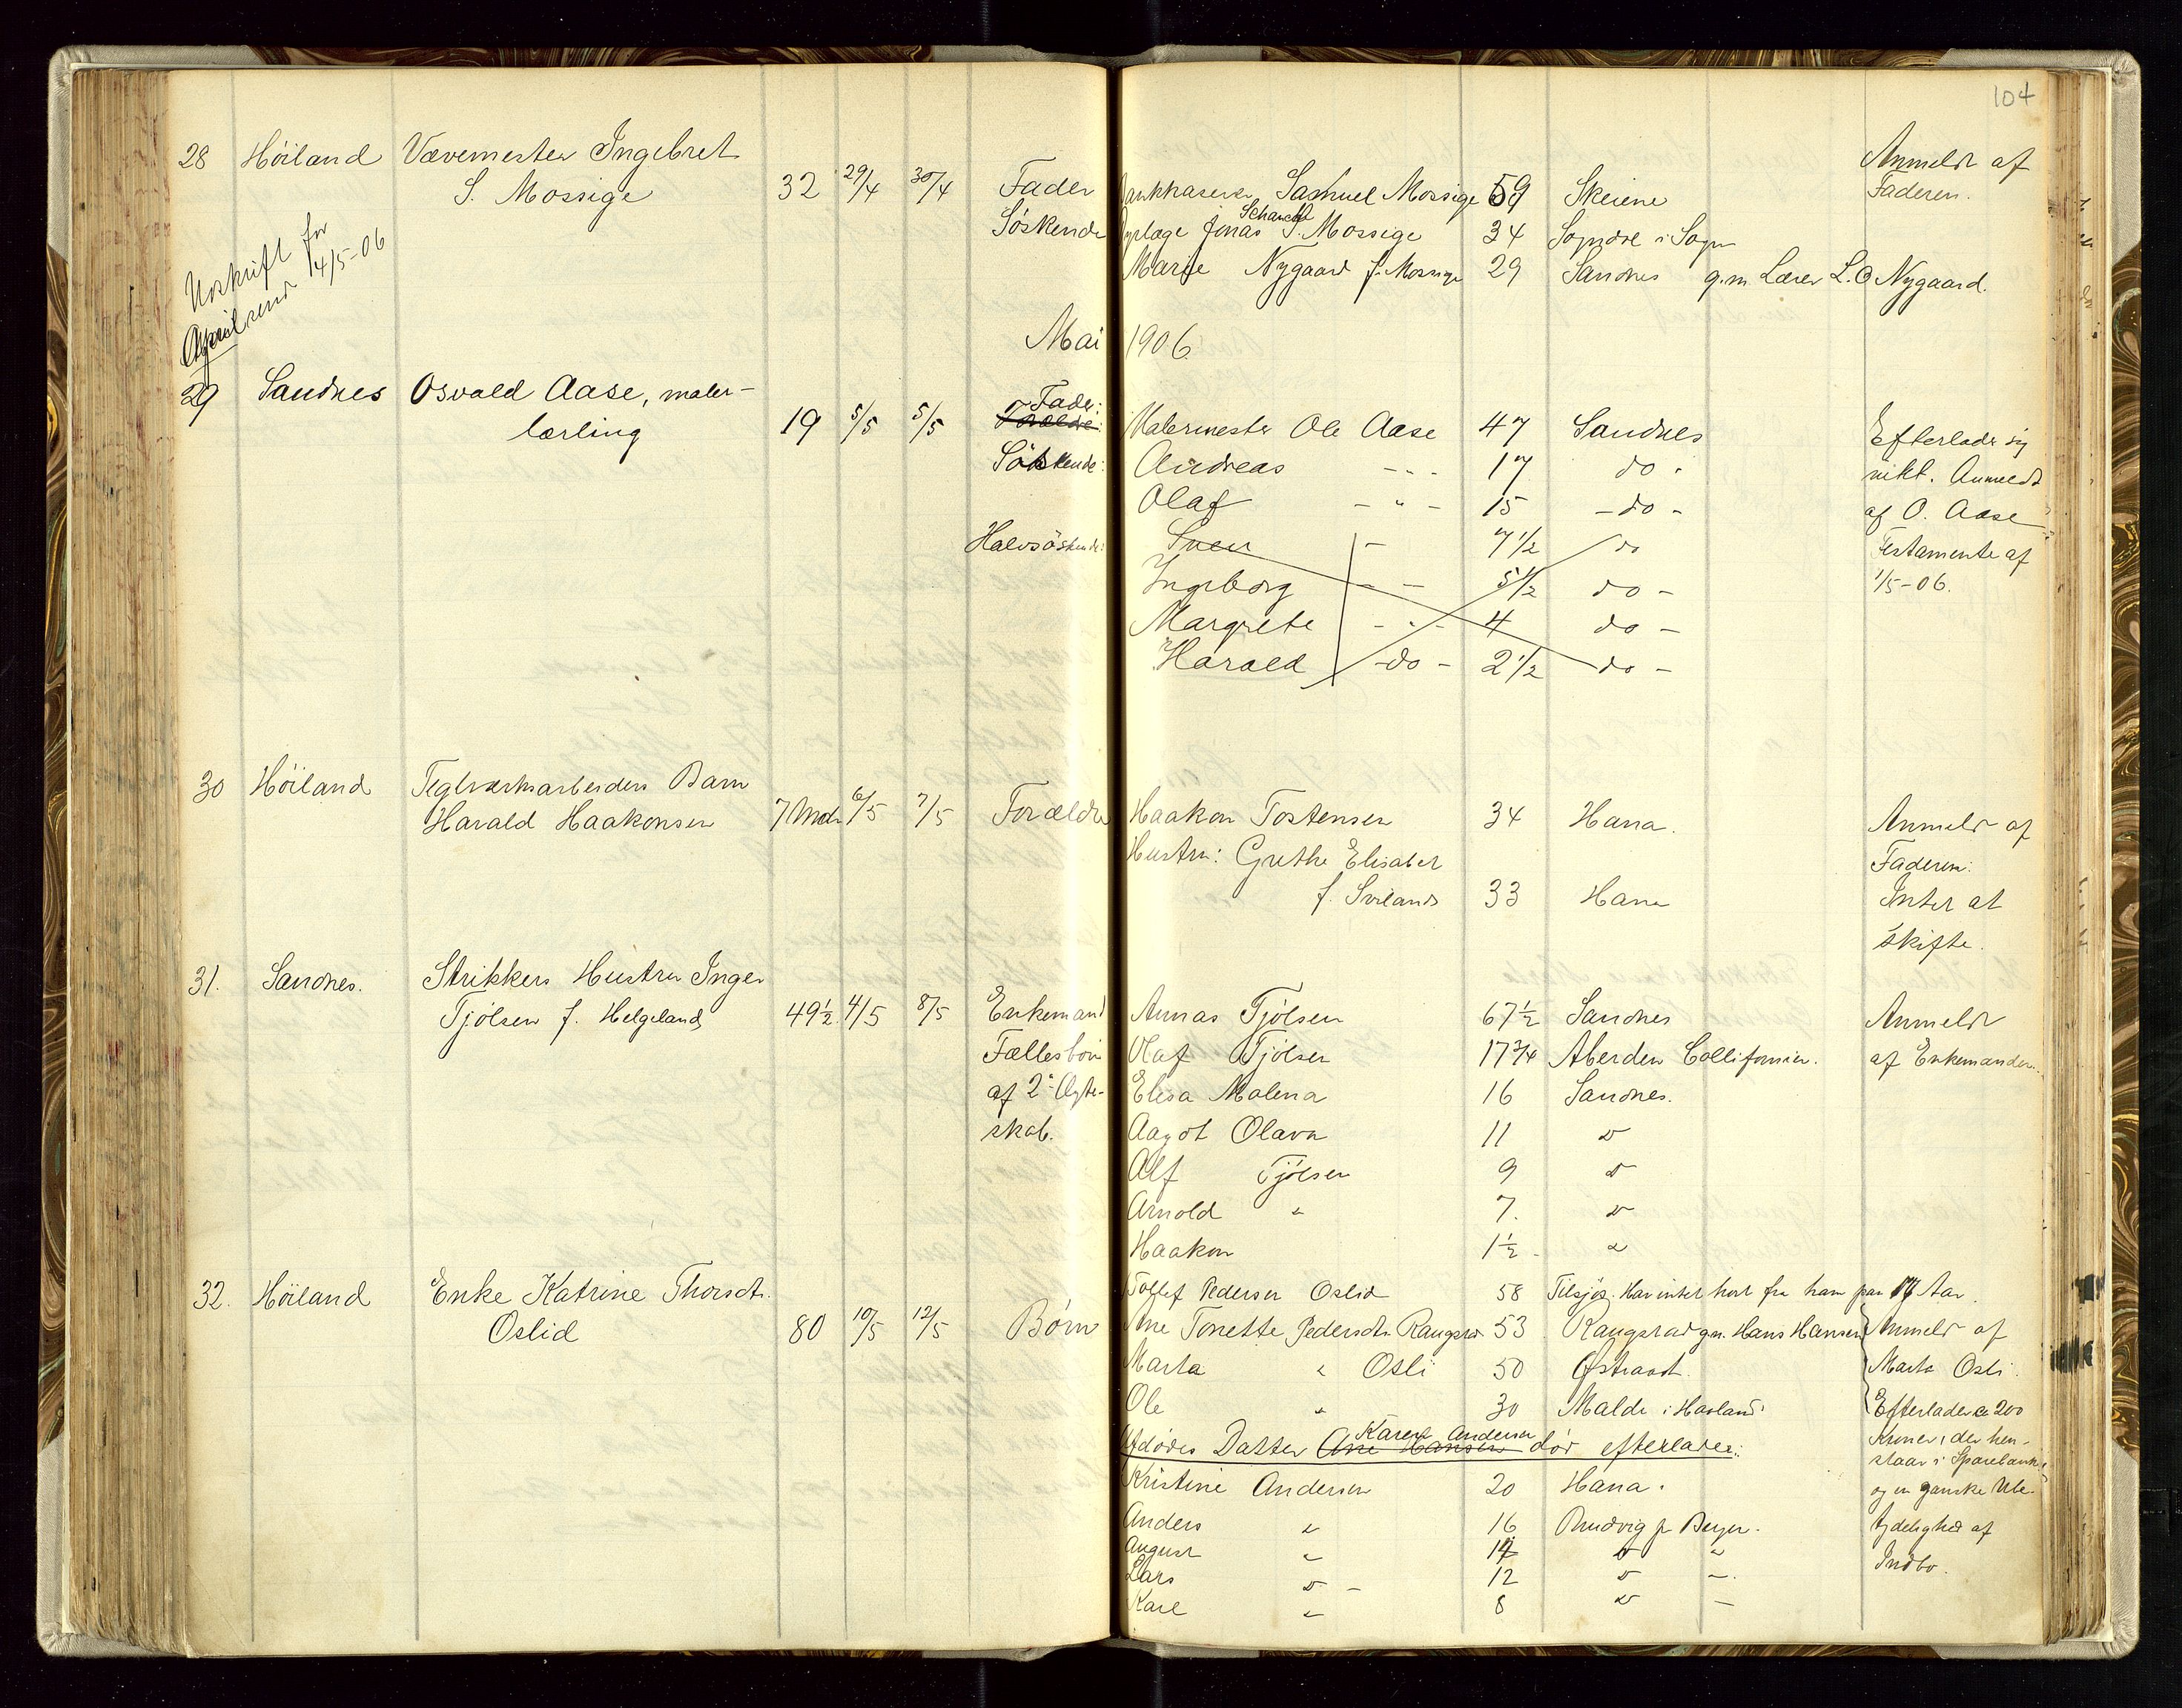 104
28 Höiland Vævemester Ingebret
S. Mossige 32 29/4 30/4 Fader Samuel Mossige 59 Skeiene Anmeldt af
Faderen.
Söskende Jonas Schanche S. Mossige 34 Sogndal i Sogn
Marie Nygaard f. Mossige 29 Sandnes g. m. Lærer L. O Nygaard.
Udskrift for
April send 14/5-06
Mai 1906.
29 Sandnes Osvald Aase, maler-
lærling 19 5/5 5/5 Fader: Forældre: Malermester Ole Aase 47 Sandnes Efterlader sig
Söskende: Andreas - " - 17 do - intet. Anmeldt
Olaf - " - 15 - do - af O. Aase
Halvsöskende: Sven - 7 1/2 do Testamente af
Ingeborg - - 5 1/2 do - 1/5-06.
Margrete - " - 4 do -
Harald - do - 2 1/2 - do -
30 Höiland Teglverksarbeiders Barn
Harald Haakonsen 7 Mdr 6/5 7/5 Forældre Haakon Tostensen 34 Hana. Anmeldt af
Hustru: Grethe Elisabet Faderen.
f. Sviland 33 Hana Intet at
skifte.
31. Sandnes. Strikkers Hustru Inger
Tjölsen f. Helgeland 49 1/2 4/5 8/5 Enkemand Annas Tjölsen 67 1/2 Sandnes Anmeldt
Fællesbörn Olaf Tjölsen 17 3/4 Aberden Collifornien. af Enkemanden.
af 2. Ægte- Elisa Malena 16 Sandnes.
skab. Aagot Olava 11 "
Alf Tjölsen 9 "
Arnold " 7. "
Haakon 1 1/2 - "
32. Höiland Enke Katrine Thorsdt.
Oslid 80 10/5 12/5 Börn Tollef Pedersen Oslid 58 Tilsjös. Har intet hört fra ham paa 17 Aar.
Ane Tonette Pedersdt. 53 g. m. Hans Hansen Anmeldt af
Marta " Osli 50 Østraadt. Marta Osli.
Ole " 30 Malde i Havland. Efterlader ca 200
Afdödes Datter Ane Hansen Karen Andersen död efterlader: Kroner, der hen-
staar i Sparebank,
Kristine Andersen 20 Hana. og en ganske Ube-
Anders " 16 tydelighed af
August " 14 " " Indbo.
Lars " - 12 " -
Karl " 8 " -